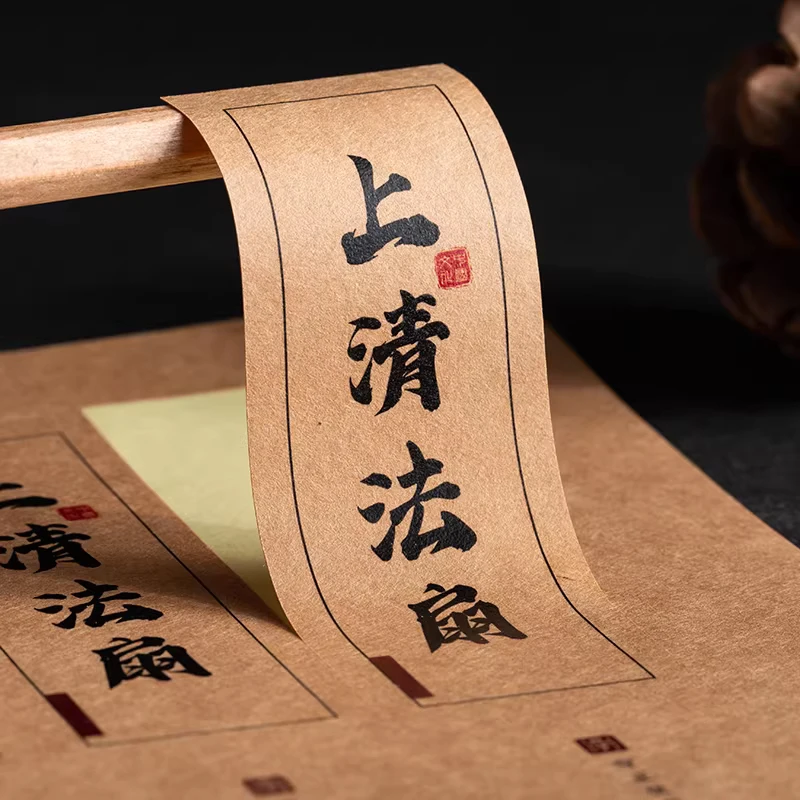 上清法扇
上清法扇